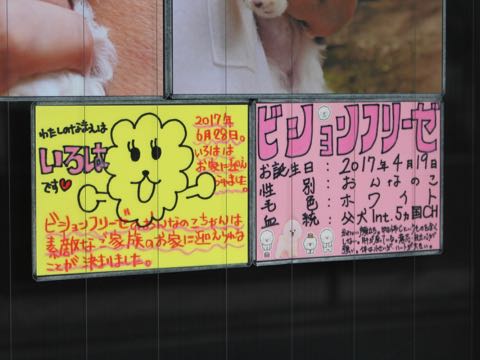 わたしのなまえは
いろは
です♥
2017年
6月28日。
いろはは
お家に迎え
られました。
ビションフリーゼのおんなのこちゃんは
素敵なご家族のお家に迎えられる
ことが決まりました。
ビションフリーゼ
お誕生日：2017年4月19日
性別：おんなのこ
毛色：ホワイト
血統：父犬Int.5ヵ国CH